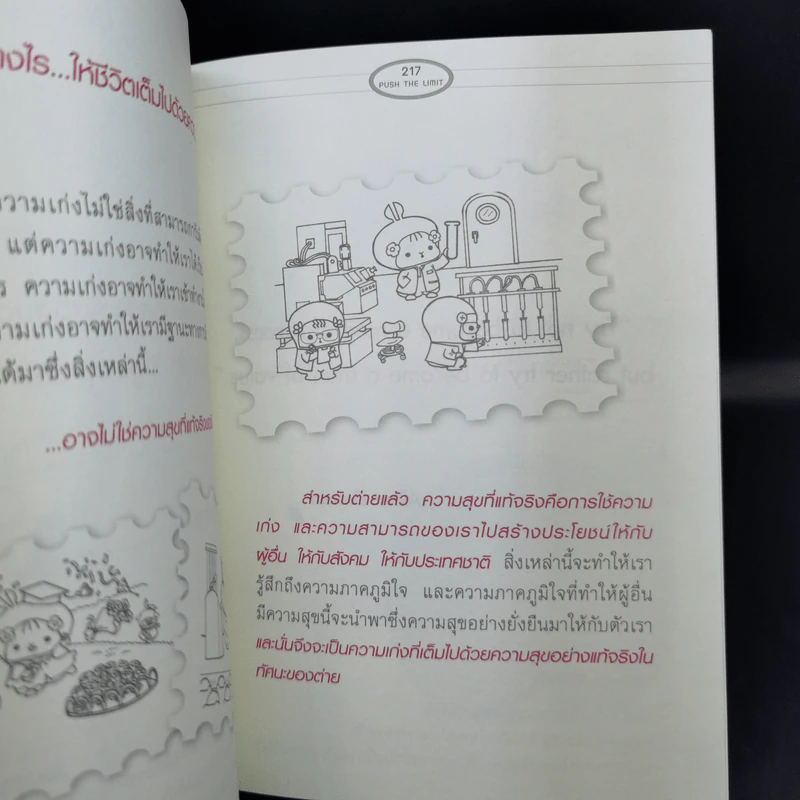 ...ให้ชีวิตเต็มไปด้วย
ความเก่งไม่ใช่สิ่งที่สามารถ
แต่ความเก่งอาจทำให้เราได้
ความเก่งอาจทำให้เรา
ความเก่งอาจทำให้เรามีฐานะ
ได้มาซึ่งสิ่งเหล่านี้...
...อาจไม่ใช่ความสุขที่แท้จริง
217
PUSH THE LIMIT
สำหรับต่ายแล้ว ความสุขที่แท้จริงคือการใช้ความ
เก่ง และความสามารถของเราไปสร้างประโยชน์ให้กับ
ผู้อื่น ให้กับสังคม ให้กับประเทศชาติ สิ่งเหล่านี้จะทำให้เรา
รู้สึกถึงความภาคภูมิใจ และความภาคภูมิใจที่ทำให้ผู้อื่น
มีความสุขนี้จะนำพาซึ่งความสุขอย่างยั่งยืนมาให้กับตัวเรา
และนั่นจึงจะเป็นความเก่งที่เต็มไปด้วยความสุขอย่างแท้จริงใน
ทัศนะของต่าย